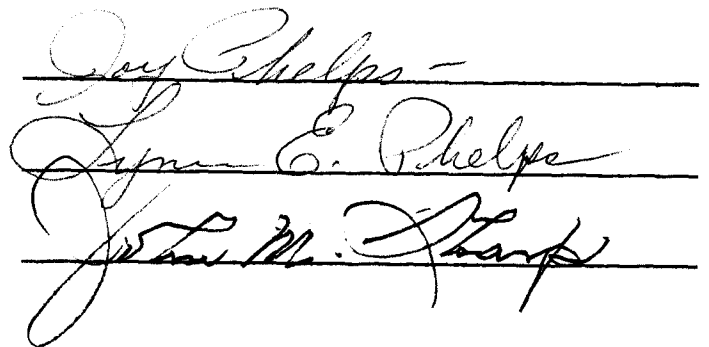 Joy Phelps
Lynn E. Phelps
John M. Sharp